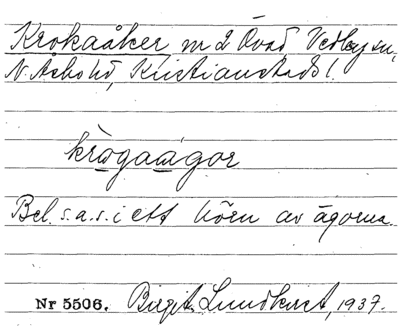 Krokaåker, m 2 Övad, Vedby sn,
N. Åsbo hd, Kristianstads l.
krògaågor
Bel. s.a.s. i ett hörn av ägorna.
Nr 5506. Birgit Lundkvist, 1937.